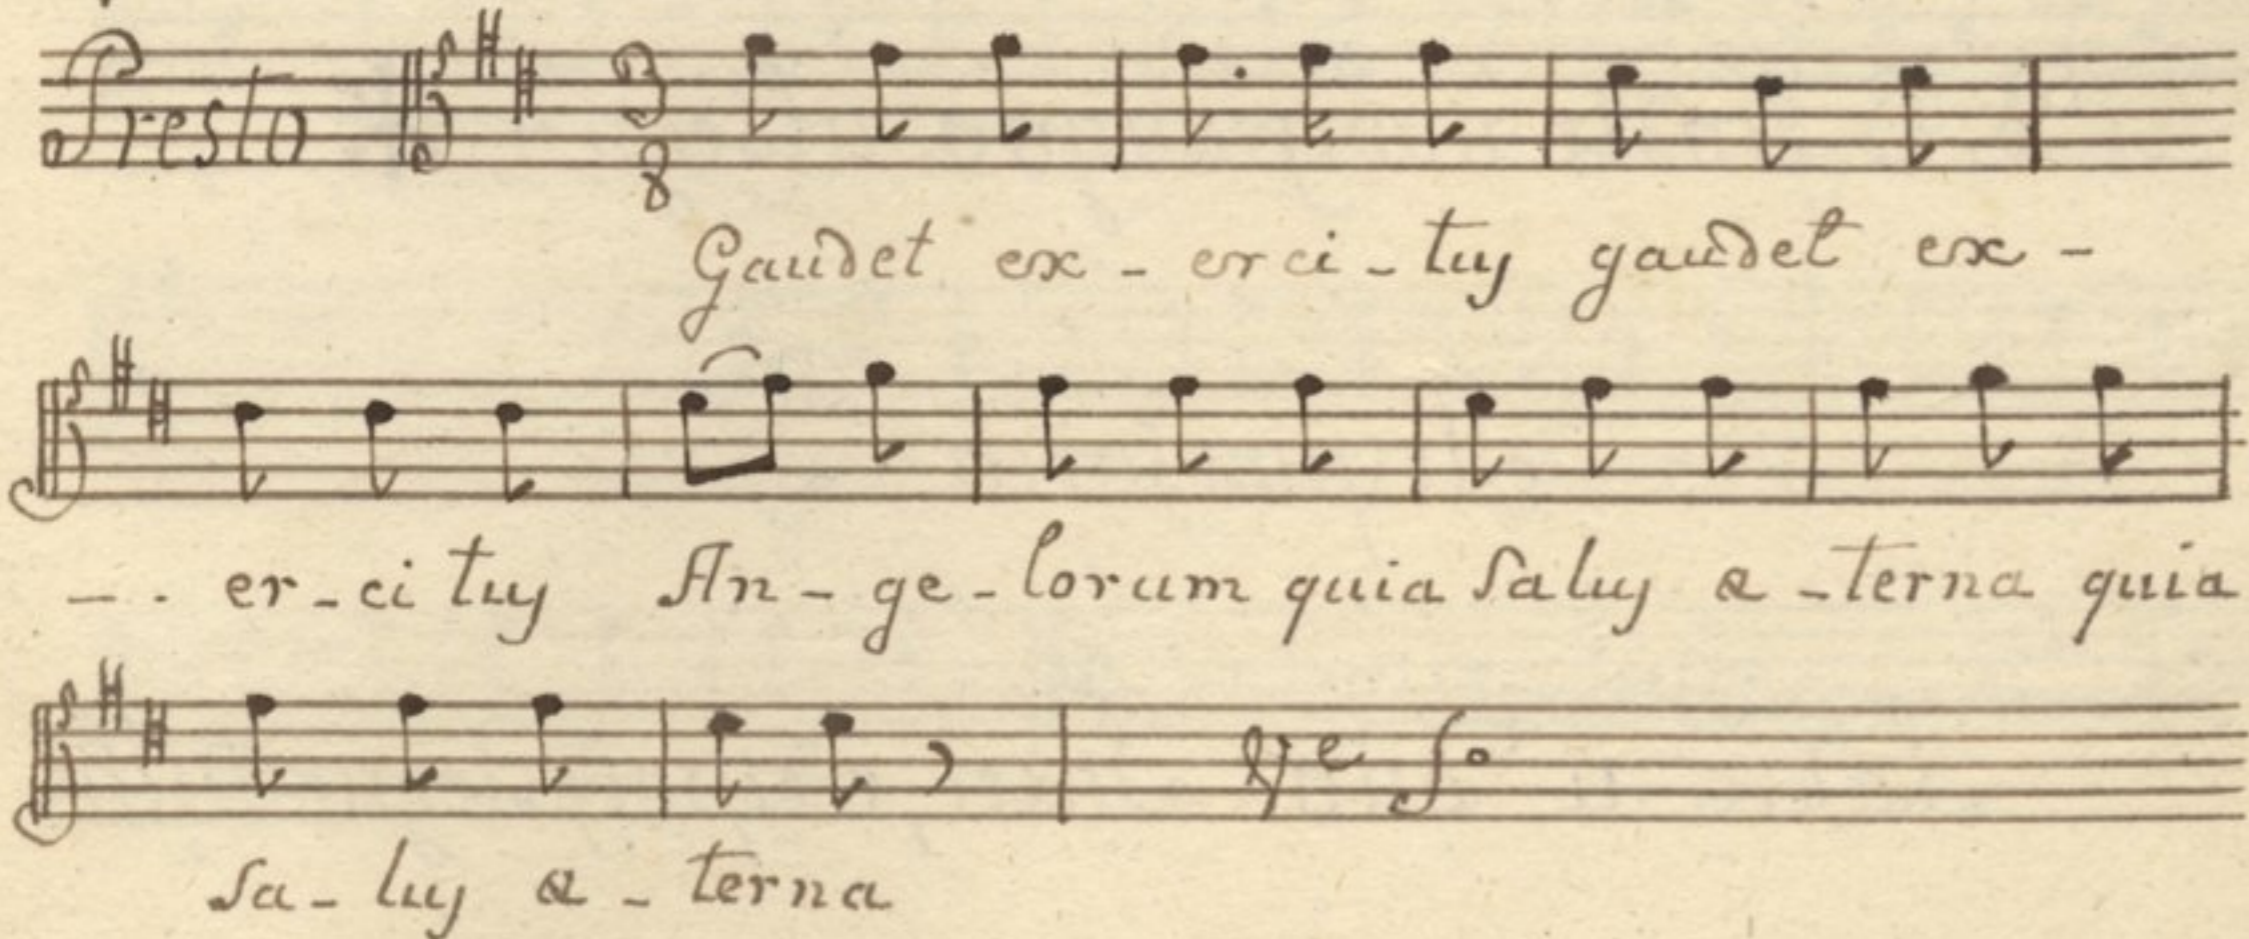 Presto 3 8
Gaudet ex - erci - tus gaudet ex -
- . er - ci tus An - ge - lorum quia salus æ - terna quia
sa - lus æ - terna